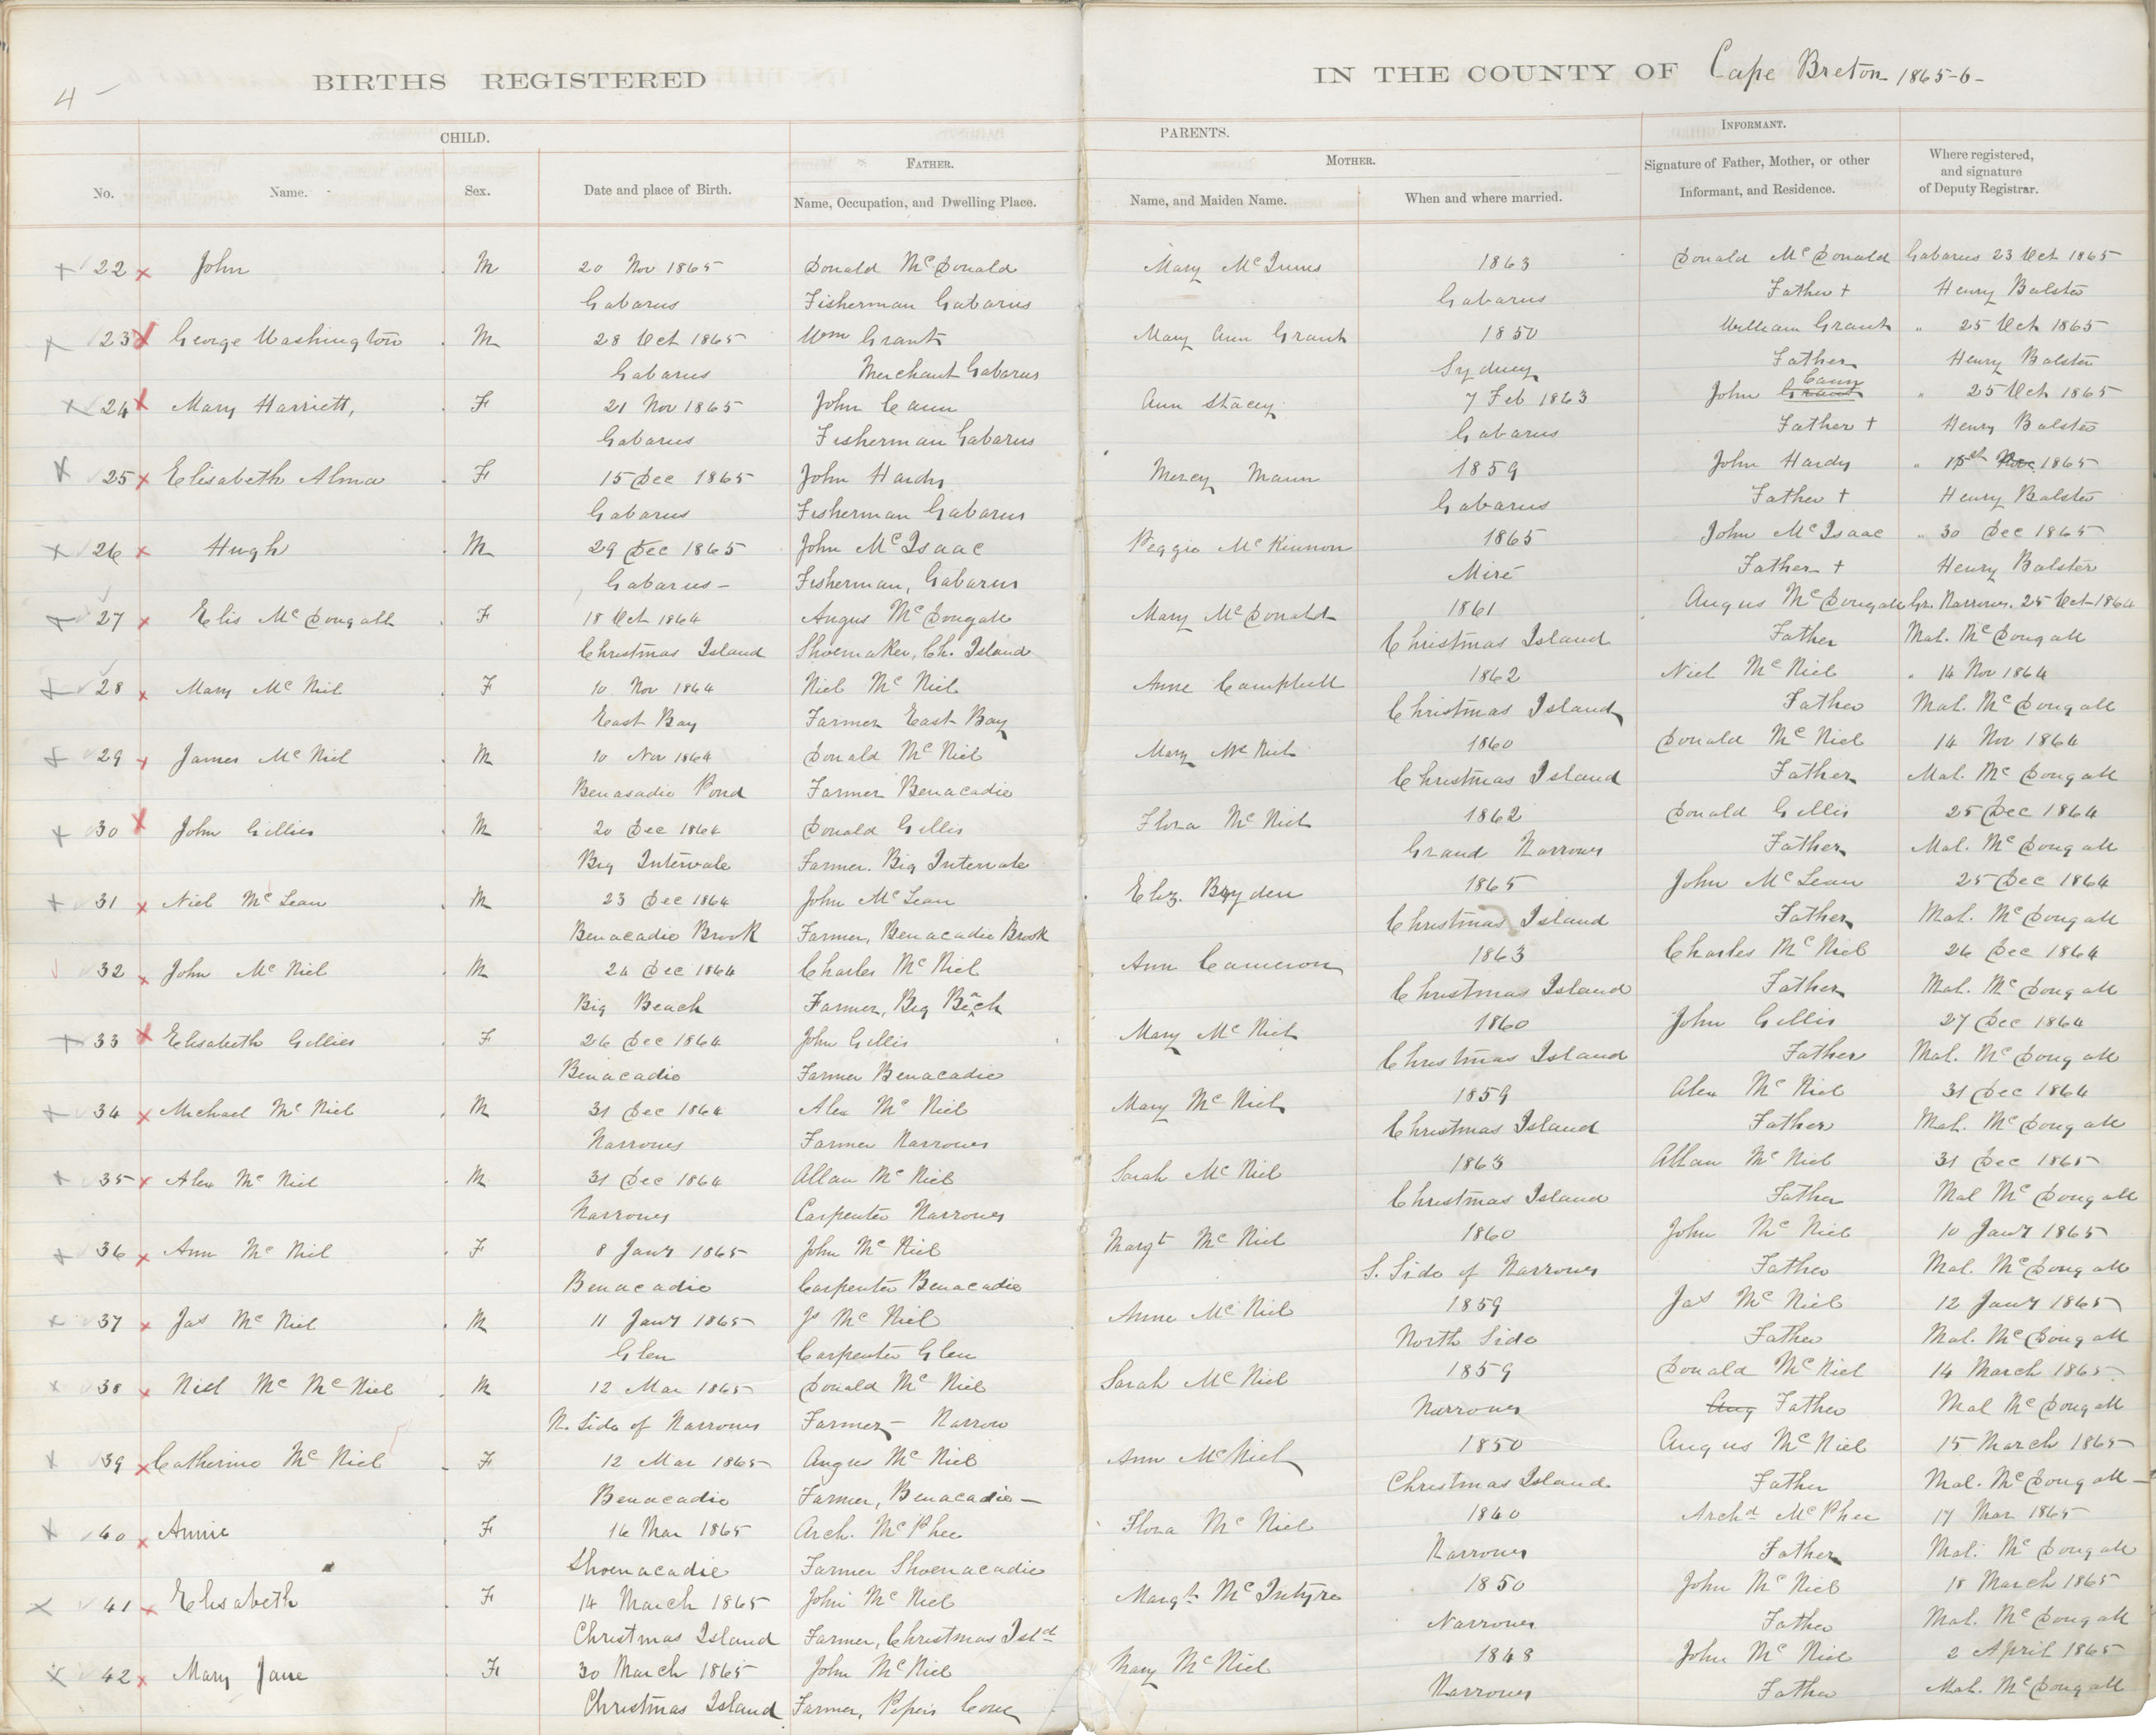 4 -
BIRTHS REGISTERED
IN THE COUNTY OF Cape Breton 1865-6-
CHILD.
PARENTS.
INFORMANT.
No.
Name.
Sex.
Date and place of Birth.
FATHER.
Name, Occupation, and Dwelling Place.
MOTHER.
Name, and Maiden Name.
When and where married.
Signature of Father, Mother, or other
Informant, and Residence.
Where registered,
and signature
of Deputy Registrar.
22 John M 20 Nov 1865 Donald McDonald Mary McInnis 1863 Donald McDonald Gabarus 23 Oct 1865
Gabarus Fisherman Gabarus Gabarus Father + Henry Balster
23 George Washington M 28 Oct 1865 Wm Grant Mary Ann Grant 1850 William Grant " 25 Oct 1865
Gabarus Merchant Gabarus Sydney Father Henry Balster
24 Mary Harriett, F 21 Nov 1865 John Cann Ann Stacey 7 Feb 1863 John Grant Cann " 25 Oct 1865
Gabarus Fisherman Gabarus Gabarus Father + Henry Balster
25 Elisabeth Alma F 15 Dec 1865 John Hardy Mercy Mann 1859 John Hardy " 15th Nov. 1865
Gabarus Fisherman Gabarus Gabarus Father + Henry Balster
26 Hugh M 29 Dec 1865 John McIsaac Peggie McKinnon 1865 John McIsaac " 30 Dec 1865
Gabarus - Fisherman, Gabarus Miré Father + Henry Balster
27 Elis McDougall F 18 Oct 1864 Angus McDougall Mary McDonald 1861 Angus McDougall Gr. Narrows. 25 Oct 1864
Christmas Island Shoemaker, Ch. Island Christmas Island Father Mal. McDougall
28 Mary McNiel F 10 Nov 1864 Niel McNiel Anne Campbell 1862 Niel McNiel " 14 Nov 1864
East Bay Farmer East Bay Christmas Island Father Mal. McDougall
29 James McNiel M 10 Nov 1864 Donald McNiel Mary McNiel 1860 Donald McNiel 14 Nov 1864
Benasadie Pond Farmer Benacadie Christmas Island Father Mal. McDougall
30 John Gillies M 20 Dec 1864 Donald Gillis Flora McNiel 1862 Donald Gillis 25 Dec 1864
Big Intervale Farmer. Big Intervale Grand Narrows Father Mal. McDougall
31 Niel McLean M 23 Dec 1864 John McLean Eliz. Bryden 1865 John McLean 25 Dec 1864
Benacadie Brook Farmer, Benacadie Brook Christmas Island Father Mal. McDougall
32 John McNiel M 24 Dec 1864 Charles McNiel Ann Cameron 1863 Charles McNiel 26 Dec 1864
Big Beach Farmer, Big Beach Christmas Island Father Mal. McDougall
33 Elisabeth Gillies F 26 Dec 1864 John Gillis Mary McNiel 1860 John Gillis 27 Dec 1864
Benacadie Farmer Benacadie Christmas Island Father Mal. McDougall
34 Michael McNiel M 31 Dec 1864 Alex McNiel Mary McNiel 1859 Alex McNiel 31 Dec 1864
Narrows Farmer Narrows Christmas Island Father Mal. McDougall
35 Alex McNiel M 31 Dec 1864 Allan McNiel Sarah McNiel 1863 Allan McNiel 31 Dec 1865
Narrows Carpenter Narrows Christmas Island Father Mal McDougall
36 Ann McNiel F 8 Jany 1865 John McNiel Margt McNiel 1860 John McNiel 10 Jany 1865
Benacadie Carpenter Benacadie S. Side of Narrows Father Mal. McDougall
37 Jas McNiel M 11 Jany 1865 Js McNiel Anne McNiel 1859 Jas McNiel 12 Jany 1865
Glen Carpenter Glen North Side Father Mal. McDougall
38 Niel Mc McNiel M 12 Mar 1865 Donald McNiel Sarah McNiel 1859 Donald McNiel 14 March 1865
N. Side of Narrows Farmer - Narrow Narrows Aug Father Mal McDougall
39 Catherine McNiel F 12 Mar 1865 Angus McNiel Ann McNiel 1850 Angus McNiel 15 March 1865
Benacadie Farmer, Benacadie - Christmas Island Father Mal. McDougall -
40 Annie F 16 Mar 1865 Arch. McPhee Flora McNiel 1840 Archd McPhee 17 Mar 1865
Shoenacadie Farmer Shoenacadie Narrows Father Mal. McDougall
41 Elisabeth F 14 March 1865 John McNiel Margt McIntyre 1850 John McNiel 18 March 1865
Christmas Island Farmer, Christmas Isld Narrows Father Mal. McDougall
42 Mary Jane F 30 March 1865 John McNiel Mary McNiel 1848 John McNiel 2 April 1865
Christmas Island Farmer, Pipers Cove Narrows Father Mal. McDougall